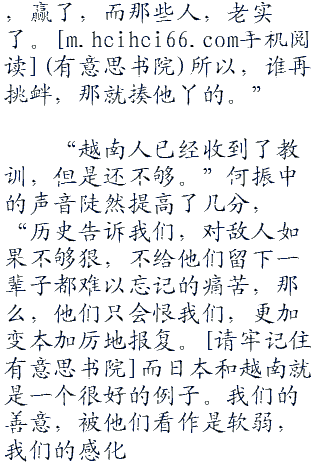 ，赢了，而那些人，老实
了。[m.hcihci66.com手机阅
读](有意思书院)所以，谁再
挑衅，那就揍他丫的。”
“越南人已经收到了教
训，但是还不够。”何振中
的声音陡然提高了几分，
“历史告诉我们，对敌人如
果不够狠，不给他们留下一
辈子都难以忘记的痛苦，那
么，他们只会恨我们，更加
变本加厉地报复。[请牢记住
有意思书院]而日本和越南就
是一个很好的例子。我们的
善意，被他们看作是软弱，
我们的感化